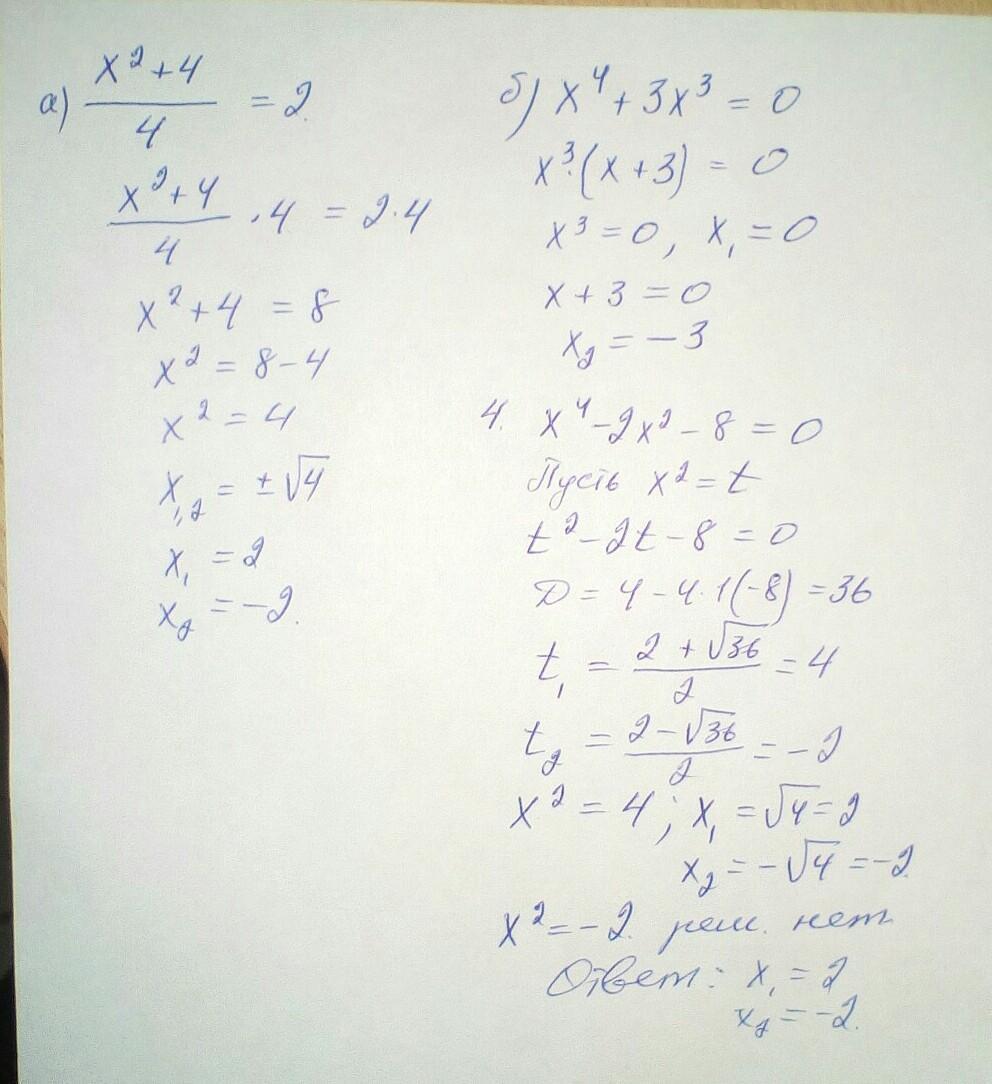 а) (x² + 4)/4 = 2.
(x² + 4)/4 · 4 = 2 · 4
x² + 4 = 8
x² = 8 - 4
x² = 4
x₁,₂ = ±√4
x₁ = 2
x₂ = -2.
б) x⁴ + 3x³ = 0
x³·(x + 3) = 0
x³ = 0, x₁ = 0
x + 3 = 0
x₂ = -3
4. x⁴ - 2x² - 8 = 0
Пусть x² = t
t² - 2t - 8 = 0
D = 4 - 4·1(-8) = 36
t₁ = (2 + √36)/2 = 4
t₂ = (2 - √36)/2 = -2
x² = 4; x₁ = √4 = 2
x₂ = -√4 = -2.
x² = -2. реш. нет
Ответ: x₁ = 2
x₂ = -2.